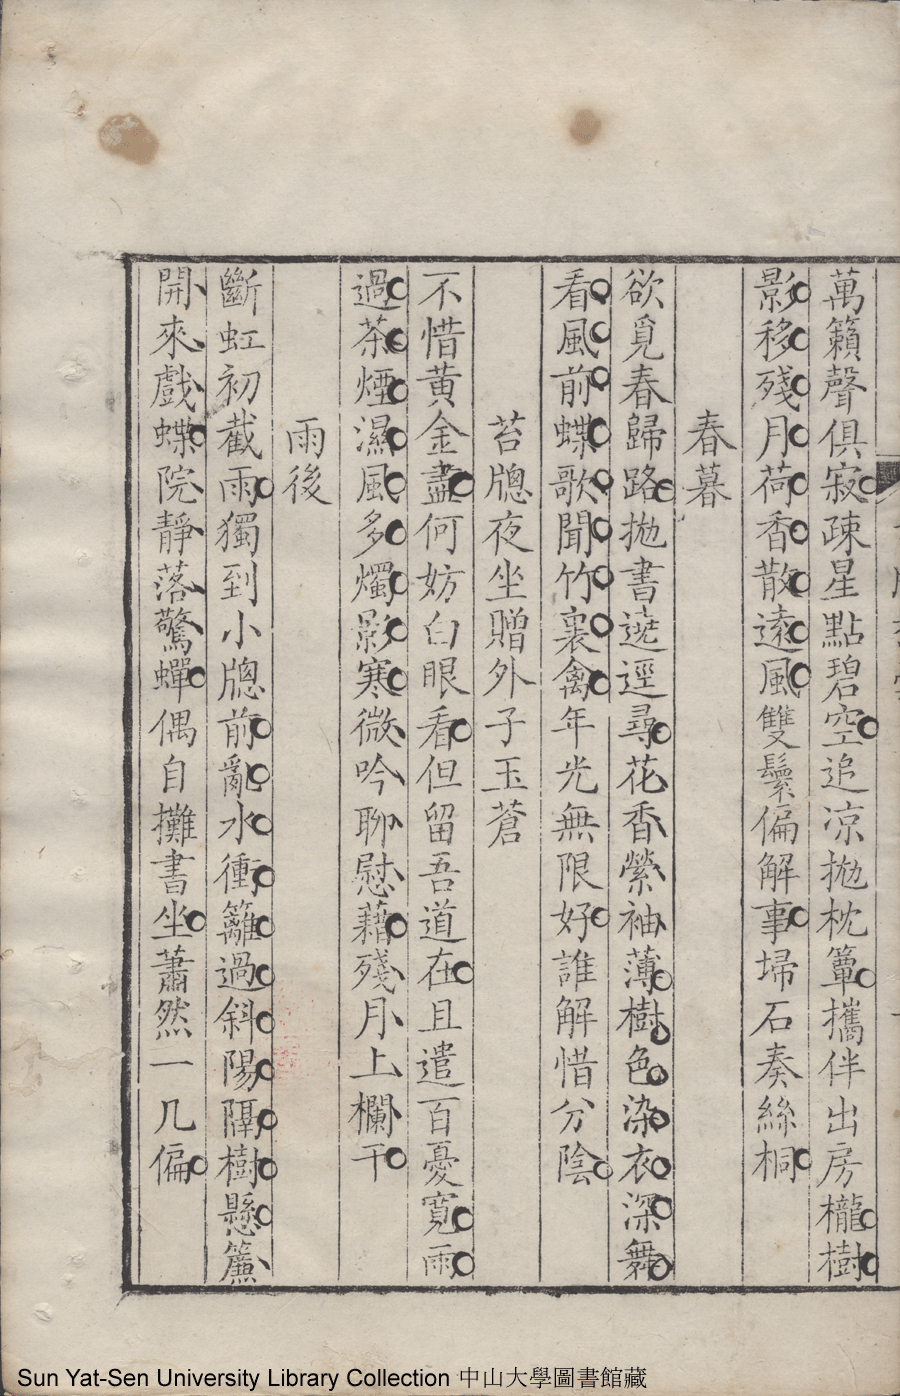 萬籟聲俱寂疎星點碧空追凉拋枕簟攜伴出房櫳樹
影移殘月荷香散遠風雙鬟偏解事埽石奏絲桐
春暮
欲覓春歸路拋書遶逕尋花香縈袖薄樹色染衣深舞
看風前蝶歌聞竹裏禽年光無限好誰解惜分陰
苔牕夜坐贈外子玉蒼
不惜黃金盡何妨白眼看但留吾道在且遣百憂寬雨
過茶煙濕風多燭影寒微吟聊慰藉殘月上欄干
雨後
斷虹初截雨獨到小牕前亂水衝籬過斜陽隔樹懸簾
開來戲蝶院靜落驚蟬偶自攤書坐蕭然一几偏
Sun Yat-Sen University Library Collection 中山大學圖書館藏